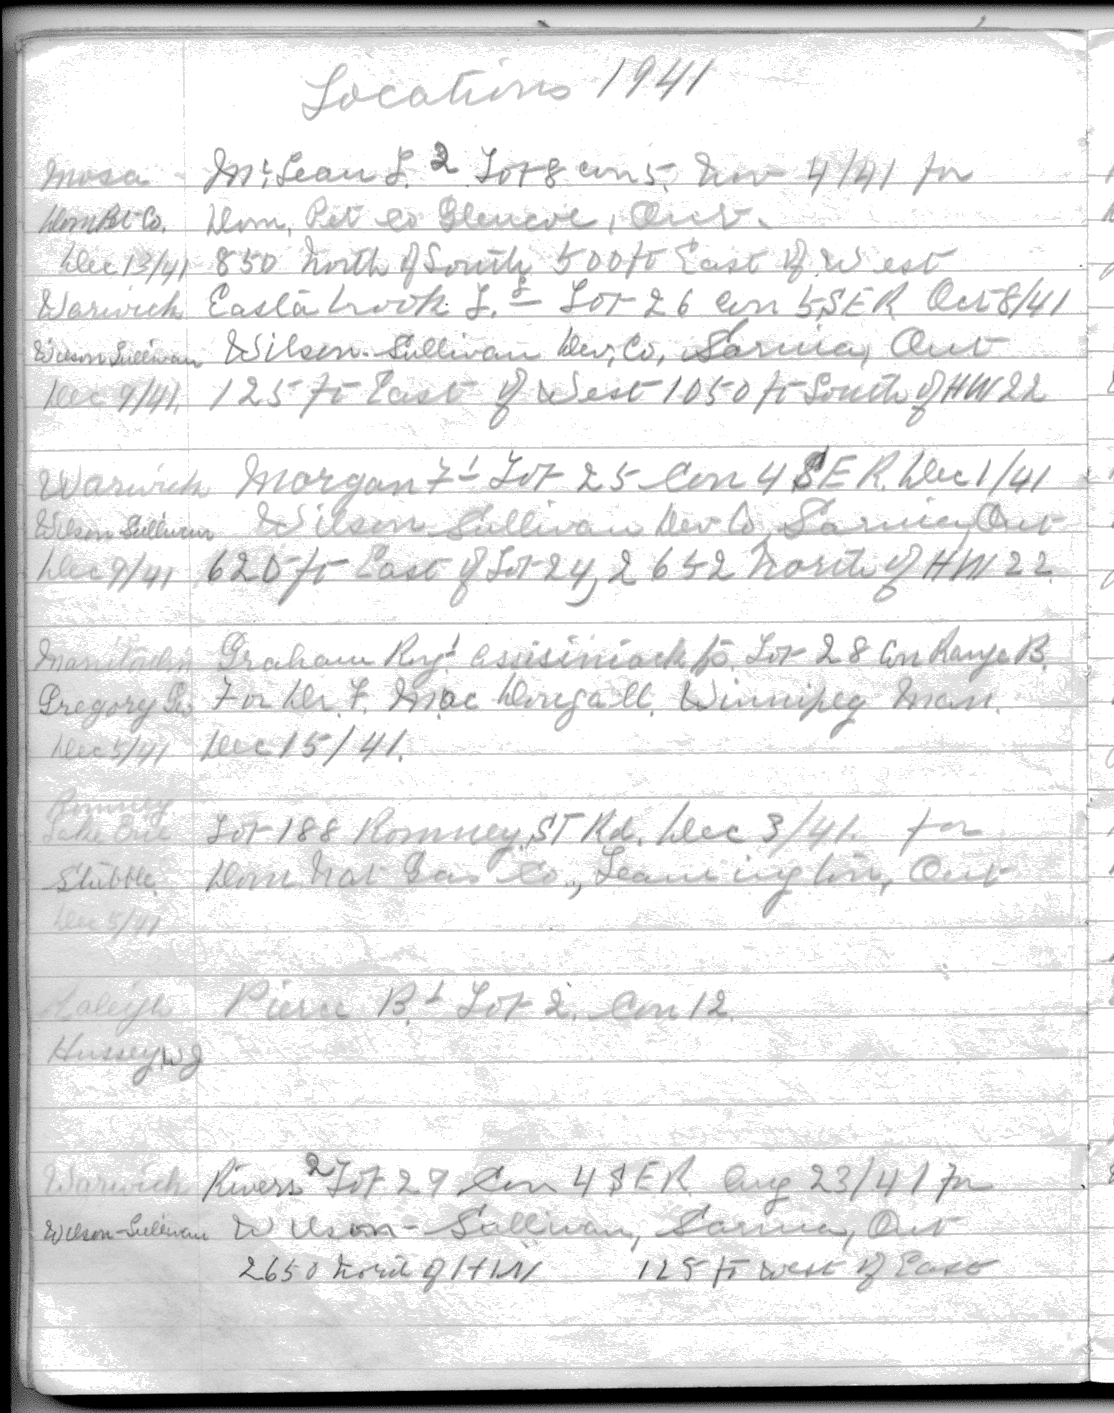 Locations 1941
Mosa McLean J. 2 Lot 8 Con 5. Nov 4/41 for
Dom Pet Co. Dom, Pet Co Glencoe, Ont.
Dec 13/41 850 North of South 500 ft East of West
Warwick Eastabrook J. Lot 26 Con 5 SER Oct 8/41
Wilson Sullivan Wilson-Sullivan Dev, Co, Sarnia, Ont
Dec 9/41 125 ft East of West 1050 ft South of HW 22
Warwick Morgan F 1 Lot 25 Con 4 SER. Dec 1/41
Wilson Sullivan Wilson Sullivan Dev Co, Sarnia, Ont
Dec 9/41 620 ft East of Lot 24, 2652 North of HW 22
Manitoulin Graham Roy 1 Assiginack Lot 28 Con Range B.
Gregory For Dr. F. MacDougall. Winnipeg Man.
Dec 5/41 Dec 15/41.
Romney
Lake Erie Lot 188 Romney, ST Rd. Dec 3/41. for
Stubble. Dom Nat Gas Co., Leamington, Ont
Dec 5/41
Raleigh Pierce B. 1 Lot 2. Con 12.
Hussey WJ
Warwick Rivers 2 Lot 29 Con 4 SER Aug 23/41 for
Wilson-Sullivan Wilson-Sullivan, Sarnia, Ont
2650 North of HW 125 ft West of East